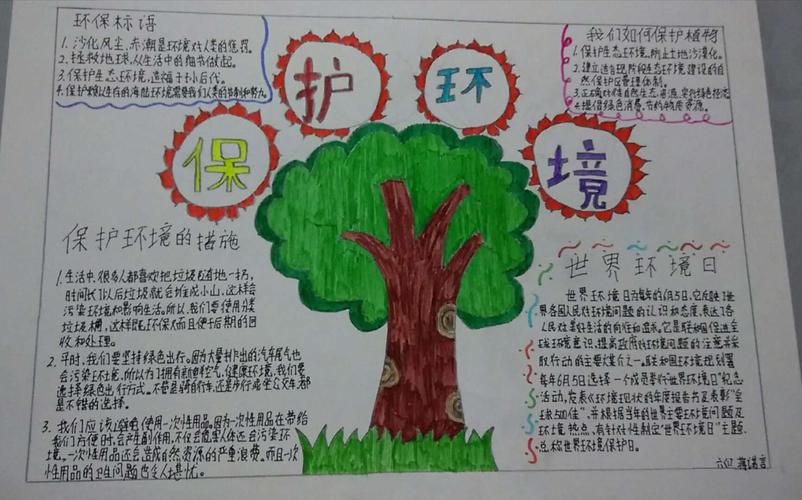 环保标语
1. 沙化风尘，赤潮是环境对人类的惩罚。
2. 拯救地球，从生活中的细节做起。
3. 保护生态环境，造福于孙后代。
4. 保护赖以生存的海陆环境需要我们人类的节制和努力。
保护环境
我们如何保护植物
1. 保护生态环境，防止土地沙漠化。
2. 建立适合现阶段生态环境建设的自
然保护区管理体制。
3. 正确对待自然生态资源，实行绿色经济
4. 提倡绿色消费，节约物质资源。
保护环境的措施
1. 生活中，很多人都喜欢把垃圾随地一扔，
时间长了以后垃圾就会堆成小山，这样会
污染环境和影响生活。所以，我们要使用分类
垃圾桶，这样既环保而且便于后期的回
收和处理。
2. 平时，我们要坚持绿色出行。因为大量排出的汽车尾气也
会污染环境，所以为了拥有新鲜空气，健康环境，我们要
选择绿色出行方式。不管是骑自行车，还是步行或坐公交车都
是不错的选择。
3. 我们应该避免使用一次性用品。因为一次性用品在带给
我们方便时，会产生副作用，不仅会危害人体还会污染环
境。一次性用品还会造成自然资源的严重浪费。而且一次
性用品的卫问题也令人堪忧。
世界环境日
世界环境日为每年的6月5日，它反映了世
界各国人民对环境问题的认识和态度，表达了各
人民对美好生活的向往和追求。它是联和国促进全
球环境意识，提高政府对环境问题的注意并采
取行动的主要媒介之一。联和国环境规划署
每年6月5日选择一个成员举行“世界环境日”纪念
活动，发表《环境现状的年度报告书及表彰“全
球500佳”，并根据当年的世界主要环境问题及
环境热点，有针对性制定“世界环境日”主题，
总称世界环境保护日。